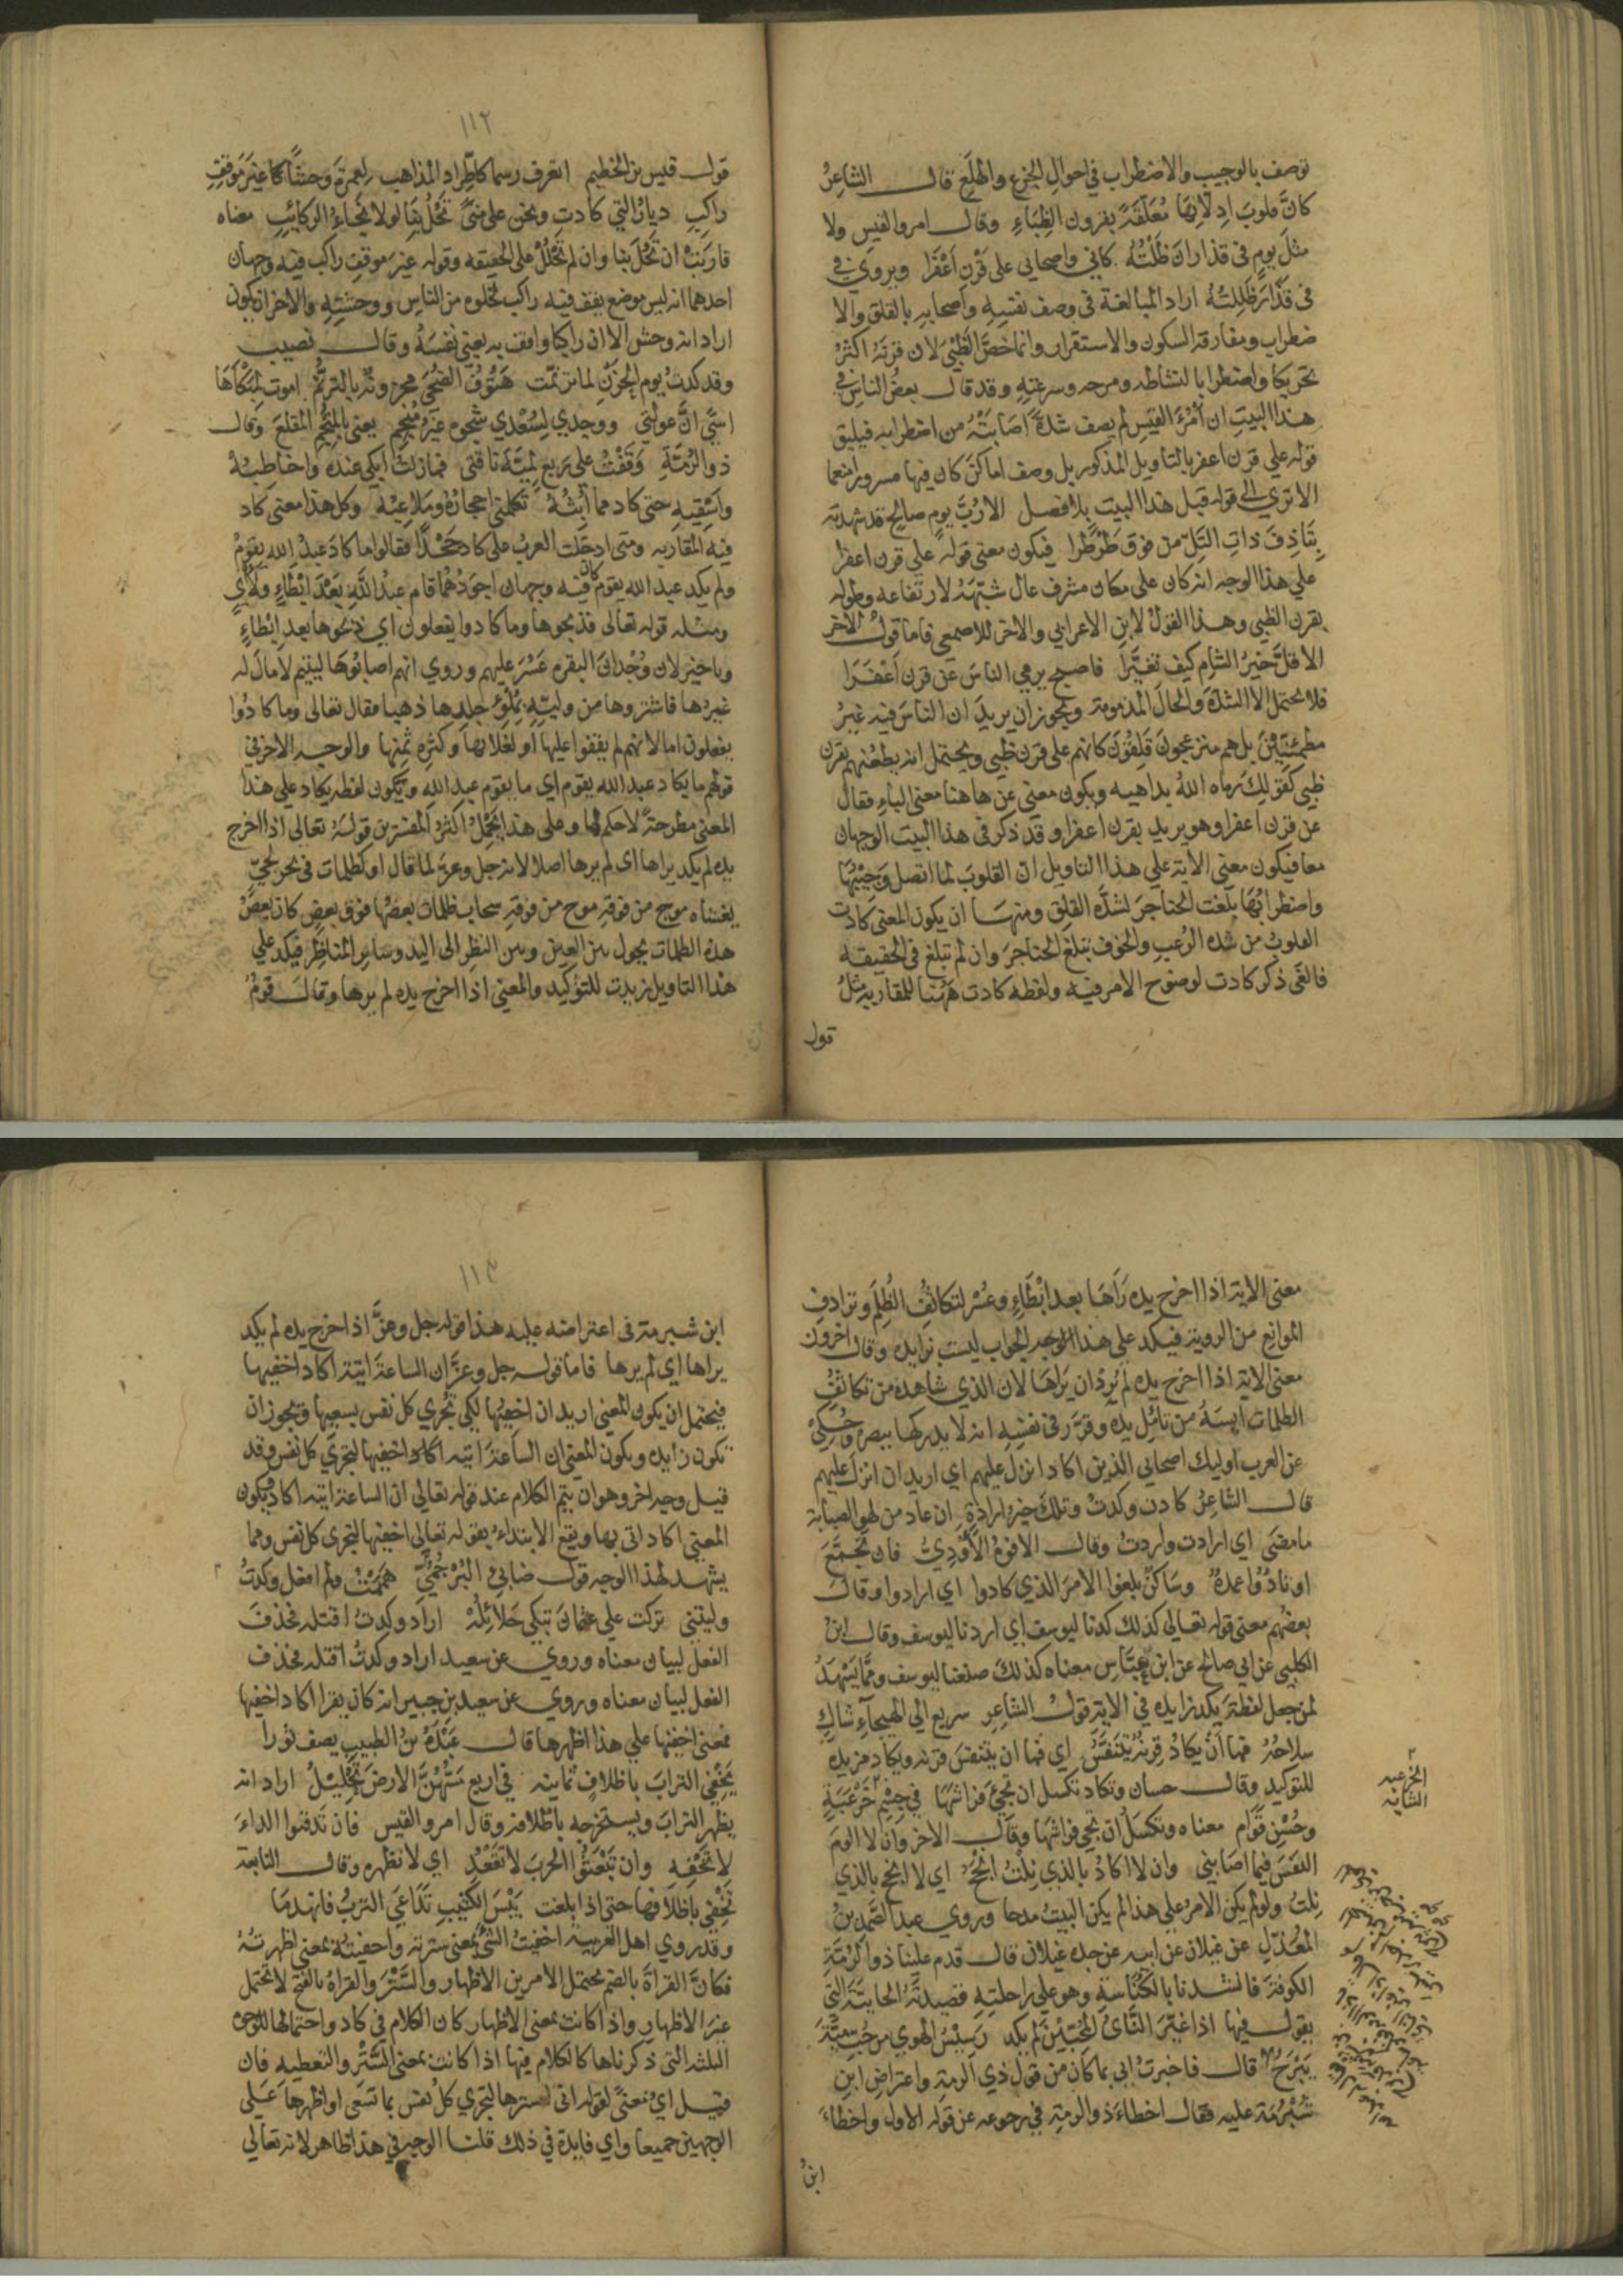 توصف بالوجيب والاضطراب في احوال الجزع والهلع قال الشاعر
كان قلوب ادلائها معلقة بقرون الظباء وقال امرو القيس ولا
مثل يوم في قذاران ظلته كاني واصحابي على قرن اعفرا ويروى في
في قذار ظللته اراد المبالغة في وصف نفسه واصحابه بالقلق والا
ضطراب ومفارقة السكون والاستقرار وانما خص الظبي لان قرنه اكثر
تحركا واضطرابا لنشاطه ومرحه وسرعته وقد قال بعض الناس في
هذا البيت ان امرء القيس لم يصف شدة اصابته من اضطرابه فيليق
قوله على قرن اعفر بالتاويل المذكور بل وصف اماكن كان فيها مسرورا متنعما
الا ترى الى قوله قبل هذا البيت بلا فصل الا رب يوم صالح قد شهدته
بتاذف ذات التل من فوق طرطرا فيكون معنى قوله على قرن اعفرا
على هذا الوجه انه كان على مكان مشرف عال شبهه لارتفاعه وطوله
بقرن الظبي وهذا القول لابن الاعرابي والاخر للاصمعي فاما قول الاخر
الا قل خير الشام كيف تغيرا فاصبح يرمي الناس عن قرن اعفرا
فلا يحتمل الا الشدة والحال المذمومة ويجوز ان يريد ان الناس فيه غير
مطمئنين بل هم منزعجون قلقون كانهم على قرن ظبي ويحتمل انه يطعنهم بقرن
ظبي كقولك رماه الله بداهيه ويكون معنى عن هاهنا معنى الباء فقال
عن قرن اعفرا وهو يريد بقرن اعفرا وقد ذكر في هذا البيت الوجهان
معا فيكون معنى الاية على هذا التاويل ان القلوب لما اتصل وجيبها
واضطرابها بلغت الحناجر لشدة القلق ومنها ان يكون المعنى كادت
القلوب من شدة الرعب والخوف تبلغ الحناجر وان لم تبلغ في الحقيقه
فالغى ذكر كادت لوضوح الامر فيه ولفظه كادت ههنا للمقاربه مثل
قول
١١٢
قول قيس بن الخطيم اتعرف رسما كاطراد المذاهب لعمرة وحشا غير موقف
راكب ديار التي كادت ونحن على منى تحل بنا لولا نجاء الركائب معناه
قاربت ان تحل بنا وان لم تحلل على الحقيقه وقوله غير موقف راكب فيه وجهان
احدهما انه ليس موضع يقف فيه راكب لخلوه من الناس ووحشته والاخر ان يكون
اراد انه وحش الا ان راكبا واقف به يعني نفسه وقال نصيب
وقد كدت يوم الحزن لما ترنمت هتوف الضحى محزونة بالترنم اموت لمبكاها
اسى ان عولتي ووجدي لسعدي شجوه غير منجم يعني بالمنجم المقلع وقال
ذو الرمة وقفت على ربع لمية ناقتي فما زلت ابكي عنده واخاطبه
واسقيه حتى كاد مما ابثه تكلمني احجاره وملاعبه وكل هذا معنى كاد
فيه المقاربه ومتى ادخلت العرب على كاد جحدا فقالوا ما كاد عبد الله يقوم
ولم يكد عبد الله يقوم كان فيه وجهان اجودهما قام عبد الله بعد ابطاء ولاي
ومثله قوله تعالى فذبحوها وما كادوا يفعلون اي ذبحوها بعد ابطاء
وتاخير لان وجدان البقرة عسر عليهم وروي انهم اصابوها ليتيم لا مال له
غيرها فاشتروها من وليه بملو جلدها ذهبا فقال تعالى وما كادوا
يفعلون اما لانهم لم يقفوا عليها او لغلائها وكثرة ثمنها والوجه الاخر في
قولهم ما يكاد عبد الله يقوم اي ما يقوم عبد الله وتكون لفظه يكاد على هذا
المعنى مطرحة لا حكم لها وعلى هذا يحمل اكثر المفسرين قوله تعالى اذا اخرج
يده لم يكد يراها اي لم يرها اصلا لانه جل وعز لما قال او كظلمات في بحر لجي
يغشاه موج من فوقه موج من فوقه سحاب ظلمات بعضها فوق بعض كان بعض
هذه الظلمات يحول بين العين وبين النظر الى اليد وسائر المناظر فيكد على
هذا التاويل زيدت للتوكيد والمعنى اذا اخرج يده لم يرها وقال قوم
معنى الاية اذا اخرج يده رآها بعد ابطاء وعسر لتكاثف الظلم وترادف
الموانع من الروية فيكد على هذا الوجه الجواب ليست بزايده وقال اخرون
معنى الاية اذا اخرج يده لم يرد ان يراها لان الذي شاهده من تكاثف
الظلمات ايسه من تامل يده وقرر في نفسه انه لا يدركها ببصره وحكي
عن العرب اوليك اصحابي الذين اكاد انزل عليهم اي اريد ان انزل عليهم
قال الشاعر كادت وكدت وتلك خير ارادة ان عاد من لهو الصبابة
ما مضى اي ارادت واردت وقال الافوه الاودي فان تجمع
اوتاد واعمدة وساكن بلغوا الامر الذي كادوا اي ارادوا وقال
بعضهم معنى قوله تعالى كذلك كدنا ليوسف اي اردنا ليوسف وقال ابن
الكلبي عن ابي صالح عن ابن عباس معناه كذلك صنعنا ليوسف ومما يشهد
لمن جعل لفظة يكد زايده في الاية قول الشاعر سريع الى الهيجاء شاك
سلاحه فما ان يكاد قرنه يتنفس اي فما ان يتنفس قرنه ويكاد مزيده
للتوكيد وقال حسان وتكاد تكسل ان تجيء فراشها في جسم خرعبة
وحسن قوام معناه وتكسل ان تجي فراشها وقال الاخر وان لا الوم
النفس فيما اصابني وان لا اكاد بالذي نلت انجح اي لا انجح بالذي
نلت ولو لم يكن الامر على هذا لم يكن البيت مدحا وروى عبد الصمد بن
المعذل عن غيلان عن ابيه عن جده غيلان قال قدم علينا ذو الرمة
الكوفة فانشدنا بالكناسة وهو على راحلته قصيدته الحايية التي
يقول فيها اذا غير الناي المحبين لم يكد رسيس الهوى من حب مية
يبرح قال فاخبرت ابي بما كان من قول ذي الرمة واعتراض ابن
شبرمة عليه فقال اخطاء ذو الرمة في رجوعه عن قوله الاول واخطاء
ابن
الخرعبه
الشابه
١١٣
ابن شبرمة في اعتراضه عليه هذا قوله جل وعز اذا اخرج يده لم يكد
يراها اي لم يرها فاما قوله جل وعز ان الساعة اتية اكاد اخفيها
فيحتمل ان يكون المعنى اريد ان اخفيها لكي تجزى كل نفس بسعيها ويجوز ان
تكون زايده ويكون المعنى ان الساعة اتيه اكاد اخفيها لتجزى كل نفس وقد
قيل وجه اخر وهو ان يتم الكلام عند قوله تعالى ان الساعة اتيه اكاد ويكون
المعنى اكاد اتي بها ويقع الابتداء بقوله تعالى اخفيها لتجزى كل نفس ومما
يشهد لهذا الوجه قول ضابئ البرجمي هممت ولم افعل وكدت
وليتني تركت على عثمان تبكي حلائله اراد وكدت اقتله فحذف
الفعل لبيان معناه وروي عن سعيد اراد وكدت اقتله فحذف
الفعل لبيان معناه وروي عن سعيد بن جبير انه كان يقرا اكاد اخفيها
فمعنى اخفيها على هذا اظهرها قال عبدة بن الطبيب يصف ثورا
يخفي التراب باظلاف ثمانية في اربع مسهن الارض تحليل اراد انه
يظهر التراب ويستخرجه باظلافه وقال امرو القيس فان تدفنوا الداء
لا نخفه وان تبعثوا الحرب لا نقعد اي لا نظهره وقال النابغة
تخفي باظلافها حتى اذا بلغت يبس الكثيب تداعى الترب فانهدما
وقد روى اهل العربيه اخفيت الشي بمعنى سترته واخفيته بمعنى اظهرته
فكان القراة بالضم تحتمل الامرين الاظهار والستر والقراة بالفتح لا تحتمل
غير الاظهار واذا كانت بمعنى الاظهار كان الكلام في كاد واحتمالها للوجوه
الثلثه التي ذكرناها كالكلام فيها اذا كانت بمعنى الستر والتغطيه فان
قيل اي معنى لقوله اني استرها لتجزى كل نفس بما تسعى او اظهرها على
الوجهين جميعا واي فايدة في ذلك قلنا الوجه في هذا ظاهر لانه تعالى